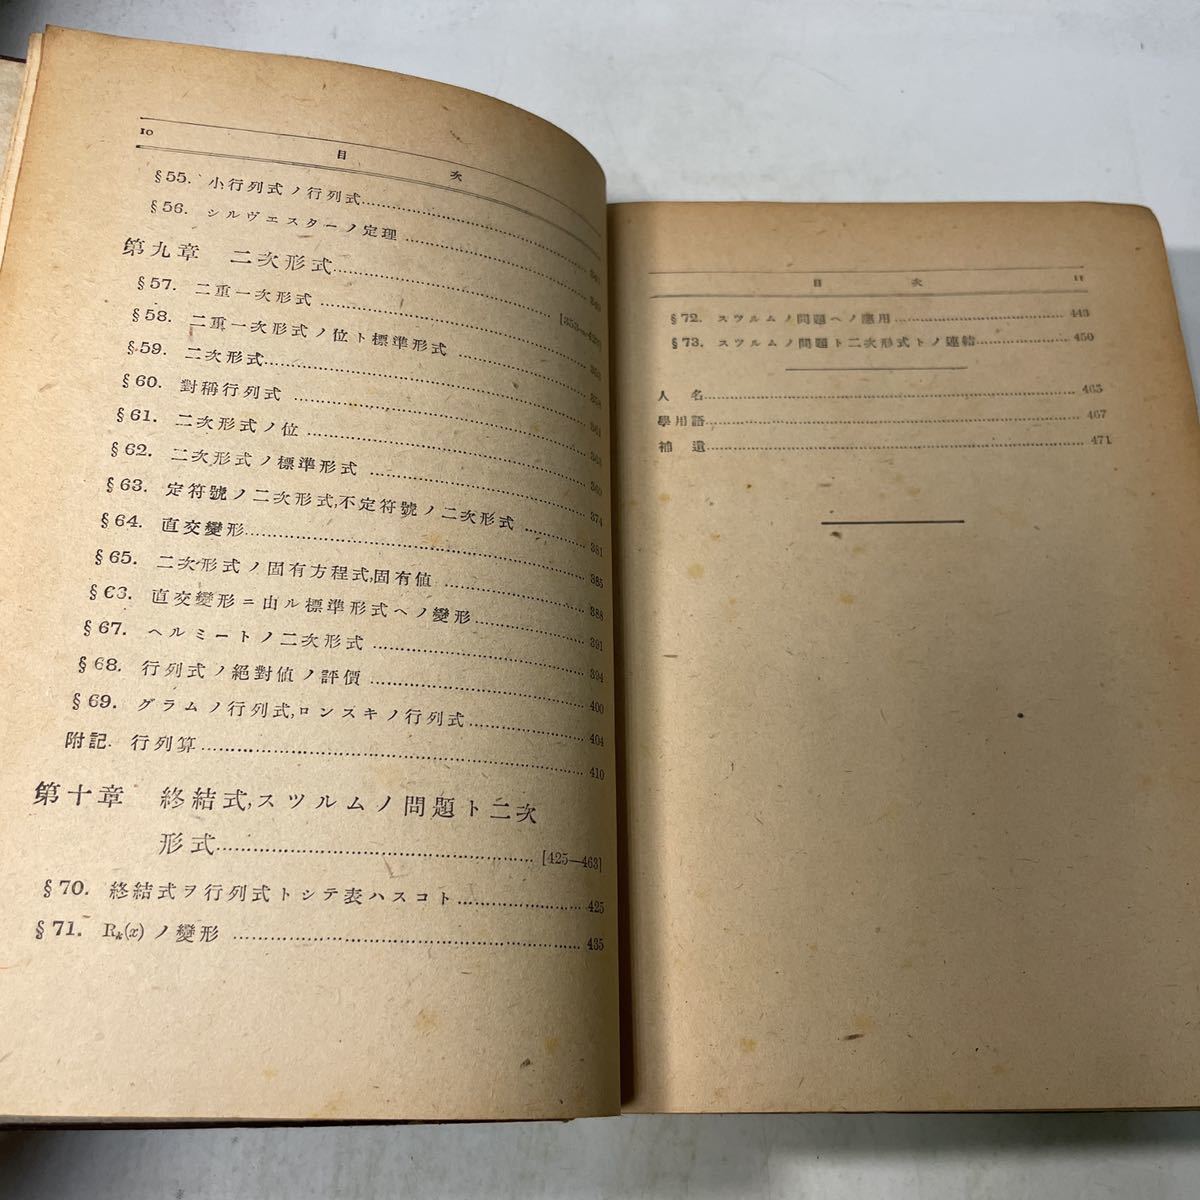 10
目次
§55. 小行列式ノ行列式
§56. シルヴエスターノ定理
第九章 二次形式
§57. 二重一次形式
§58. 二重一次形式ノ位ト標準形式
§59. 二次形式
§60. 對稱行列式
§61. 二次形式ノ位
§62. 二次形式ノ標準形式
§63. 定符號ノ二次形式,不定符號ノ二次形式 374
§64. 直交變形 381
§65. 二次形式ノ固有方程式,固有値 385
§66. 直交變形ニ由ル標準形式ヘノ變形 388
§67. ヘルミートノ二次形式 391
§68. 行列式ノ絕對値ノ評價 394
§69. グラムノ行列式,ロンスキノ行列式 400
404
附記. 行列算 410
第十章 終結式,スツルムノ問題ト二次
形式 [425—463]
§70. 終結式ヲ行列式トシテ表ハスコト 425
§71. Rk(x)ノ變形 435
目次 11
§72. スツルムノ問題ヘノ應用 443
§73. スツルムノ問題ト二次形式トノ連結 450
人名 465
學用語 467
補遺 471